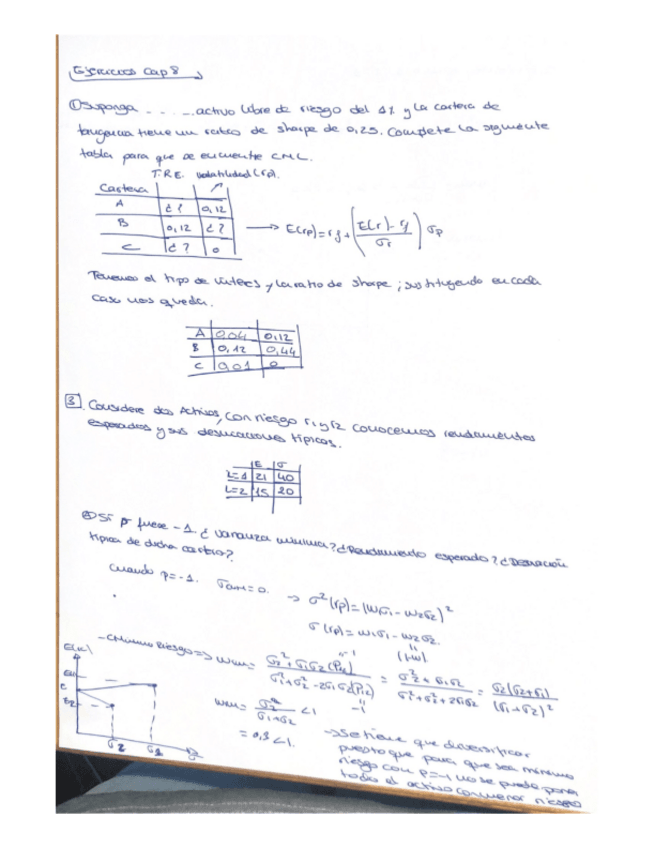 Ejercicios Cap 8
① Suponga ..... activo libre de riesgo del 1% y la cartera de
tangencia tiene un ratio de sharpe de 0,25. Complete la siguiente
tabla para que se encuentre CML.
T.R.E. Volatilidad (rp).
Cartera
A ¿? 0,12
B 0,12 ¿? → E(rp) = rf + (E(r) - rf / σr) σp
C ¿? 0
Tenemos el tipo de interés y la ratio de sharpe; sustituyendo en cada
caso nos queda.
A 0,04 0,12
B 0,12 0,44
C 0,01 0
3 Considere dos Activos, con riesgo r1 y r2 conocemos rendimientos
esperados y sus desviaciones típicas.
E σ
i=1 21 40
i=2 15 20
a) Si ρ fuese -1 ¿varianza mínima? ¿Rendimiento esperado? ¿Desviación
típica de dicha cartera?
Cuando ρ=-1. = 0. → σ²(rp) = (w1σ1 - w2σ2)²
σ(rp) = w1σ1 - w2σ2.
(1-w)
- C Mínimo Riesgo => = σ2² + σ1σ2(ρ12) / σ1² + σ2² - 2σ1σ2(ρ12) = σ2² + σ1σ2 / σ1² + σ2² + 2σ1σ2 = σ2(σ2+σ1) / (σ1+σ2)²
-1
-1
= σ2 / σ1+σ2 < 1
= 0,3 < 1.
→ Se tiene que diversificar
puesto que para que sea mínimo
riesgo con ρ=-1 no se puede poner
todo el activo con menor riesgo
E(rc)
C
σ2 σ1